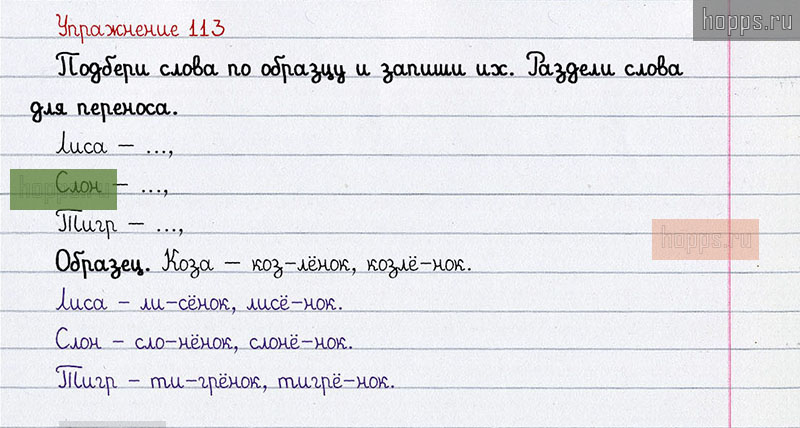 hopps.ru
Упражнение 113
Подбери слова по образцу и запиши их. Раздели слова
для переноса.
Лиса – ...,
hopps.ru
Слон – ...,
Тигр – ...,
hopps.ru
Образец. Коза – коз-лёнок, козлё-нок.
Лиса – ли-сёнок, лисё-нок.
Слон – сло-нёнок, слонё-нок.
Тигр – ти-грёнок, тигрё-нок.